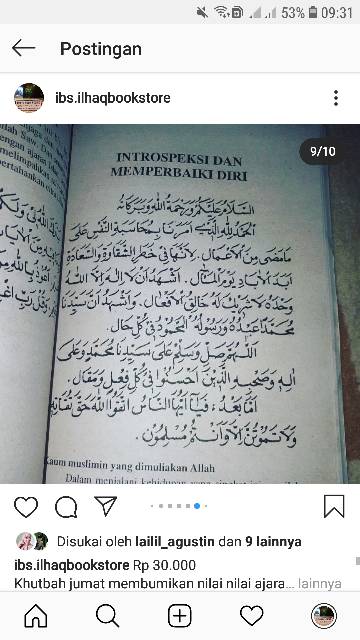 53% 09:31
Postingan
ibs.ilhaqbookstore
9/10
INTROSPEKSI DAN
MEMPERBAIKI DIRI
السَّلَامُ عَلَيْكُمْ وَرَحْمَةُ اللهِ وَبَرَكَاتُهُ
اَلْحَمْدُ لِلّٰهِ الَّذِيْ اَمَرَنَا بِمُحَاسَبَةِ النَّفْسِ عَلَى
مَامَضَى مِنَ الْاَعْمَالِ. لِاَنَّهَا فِيْ خَطَرِ الشَّقَاوَةِ وَالسَّعَادَةِ
اَبَدَ الْاٰبَادِ يَوْمَ الْمَآلِ. اَشْهَدُ اَنْ لَا اِلٰهَ اِلَّا اللهُ
وَحْدَهُ لَا شَرِيْكَ لَهُ خَالِقُ الْاَفْعَالِ. وَاَشْهَدُ اَنَّ سَيِّدَنَا
مُحَمَّدًا عَبْدُهُ وَرَسُوْلُهُ الْمَحْمُوْدُ فِيْ كُلِّ حَالٍ.
اَللّٰهُمَّ صَلِّ وَسَلِّمْ عَلَى سَيِّدِنَا مُحَمَّدٍ وَعَلَى
اٰلِهِ وَصَحْبِهِ الَّذِيْنَ اَحْسَنُوْا فِيْ كُلِّ فِعْلٍ وَمَقَالٍ.
اَمَّا بَعْدُ: فَيَا اَيُّهَا النَّاسُ اتَّقُوا اللهَ حَقَّ تُقَاتِهِ
وَلَا تَمُوْتُنَّ اِلَّا وَاَنْتُمْ مُسْلِمُوْنَ.
Kaum muslimin yang dimuliakan Allah
Dalam menjalani kehidupan yang
Disukai oleh lailil_agustin dan 9 lainnya
ibs.ilhaqbookstore Rp 30.000
Khutbah jumat membumikan nilai nilai ajara... lainnya